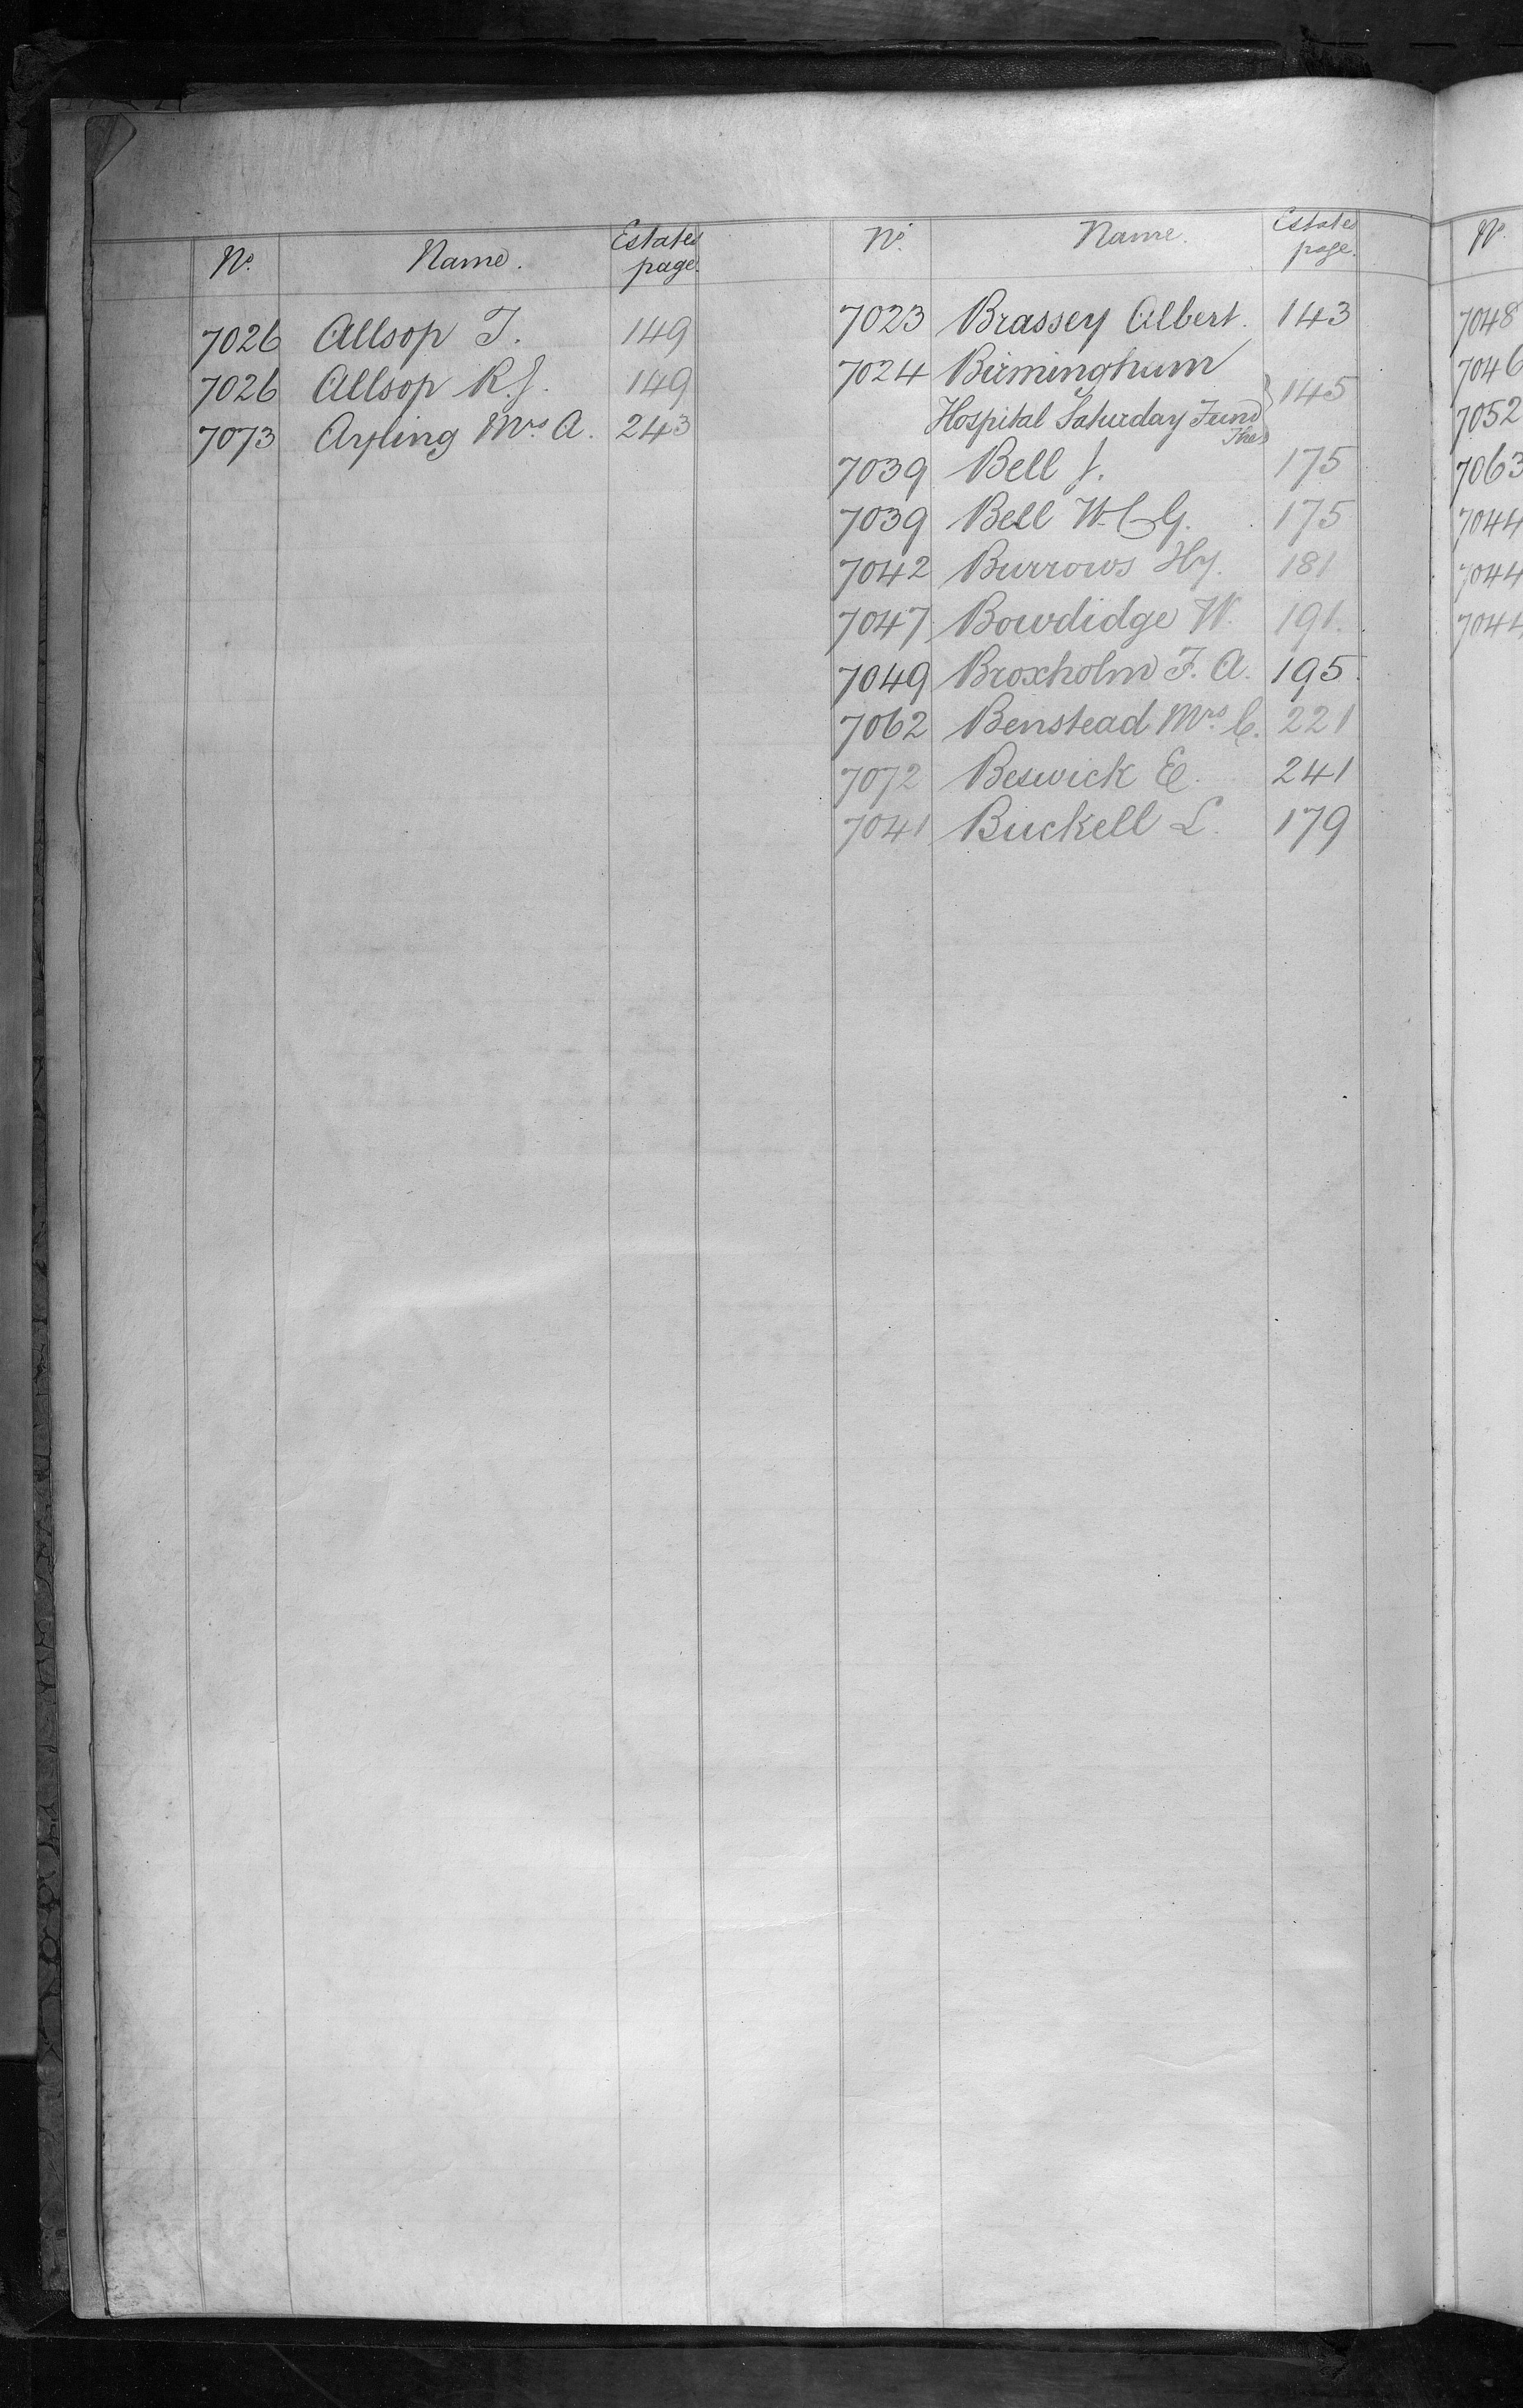 No. Name. Estates page.
7026 Allsop T. 149
7026 Allsop R.J. 149
7073 Mrs A. 243
No. Name. Estates page.
7023 Brassey Albert. 143
7024 Birmingham
Hospital Saturday Fund 145
The
7039 Bell J. 175
7039 Bell W.C.G. 175
7042 Burrows Hy. 181
7047 Bowdidge W. 191.
7049 Broxholm F. A. 195.
7062 Benstead Mrs C. 221
7072 Beswick E. 241
7041 Buckell L. 179
No.
7048
7046
7052
7063
7044
7044
7044